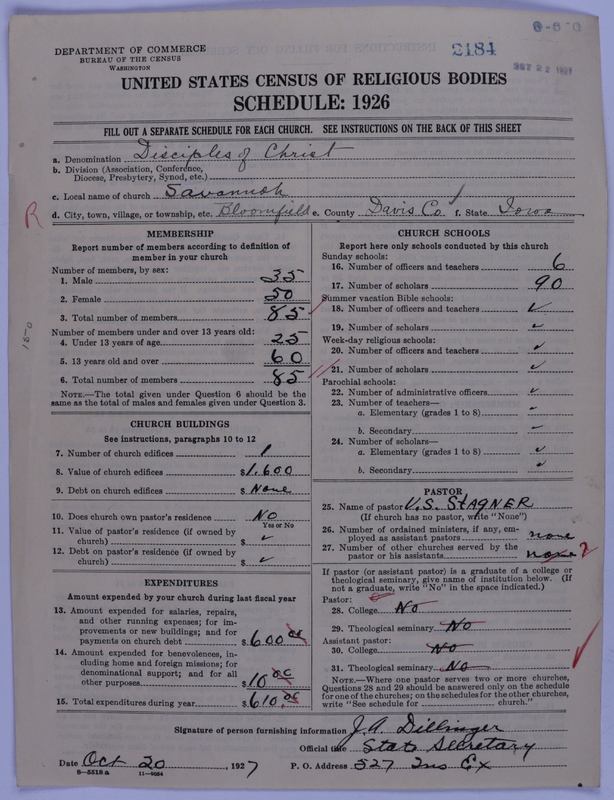 6-5-0
DEPARTMENT OF COMMERCE
BUREAU OF THE CENSUS
WASHINGTON
2184
UNITED STATES CENSUS OF RELIGIOUS BODIES
SCHEDULE: 1926
FILL OUT A SEPARATE SCHEDULE FOR EACH CHURCH. SEE INSTRUCTIONS ON THE BACK OF THIS SHEET
a. Denomination Disciples of Christ
b. Division (Association, Conference,
Diocese, Presbytery, Synod, etc.)
c. Local name of church Savannah
R
d. City, town, village, or township, etc. Bloomfield e. County Davis Co. f. State Iowa
MEMBERSHIP
Report number of members according to definition of
member in your church
Number of members, by sex:
1. Male 35
2. Female 50
3. Total number of members 85
Number of members under and over 13 years old:
4. Under 13 years of age 25
5. 13 years old and over 60
6. Total number of members 85
NOTE.—The total given under Question 6 should be
the same as the total of males and females given under Question 3.
CHURCH BUILDINGS
See instructions, paragraphs 10 to 12
7. Number of church edifices 1
8. Value of church edifices $1,600
9. Debt on church edifices $None
10. Does church own pastor's residence No
Yes or No
11. Value of pastor's residence (if owned by
church) $ ✓
12. Debt on pastor's residence (if owned by
church) $ ✓
EXPENDITURES
Amount expended by your church during last fiscal year
13. Amount expended for salaries, repairs,
and other running expenses; for im-
provements or new buildings; and for
payments on church debt $600 00
14. Amount expended for benevolences, in-
cluding home and foreign missions; for
denominational support; and for all
other purposes $10 00
15. Total expenditures during year $610.00
CHURCH SCHOOLS
Report here only schools conducted by this church
Sunday schools:
16. Number of officers and teachers 6
17. Number of scholars 90
Summer vacation Bible schools:
18. Number of officers and teachers ✓
19. Number of scholars ✓
Week-day religious schools:
20. Number of officers and teachers ✓
21. Number of scholars ✓
Parochial schools:
22. Number of administrative officers ✓
23. Number of teachers—
a. Elementary (grades 1 to 8) ✓
b. Secondary ✓
24. Number of scholars—
a. Elementary (grades 1 to 8) ✓
b. Secondary ✓
PASTOR
25. Name of pastor V.S. STAGNER
(If church has no pastor, write "None")
26. Number of ordained ministers, if any, em-
ployed as assistant pastors none
27. Number of other churches served by the
pastor or his assistants none 2
If pastor (or assistant pastor) is a graduate of a college or
theological seminary, give name of institution below. (If
not a graduate, write "No" in the space indicated.)
Pastor:
28. College No
29. Theological seminary No
Assistant pastor:
30. College No
31. Theological seminary No
NOTE.—Where one pastor serves two or more churches,
Questions 28 and 29 should be answered only on the schedule
for one of the churches; on the schedules for the other churches,
write "See schedule for church."
Signature of person furnishing information J.A. Dillinger
Official title State Secretary
Date Oct 20, 1927 P. O. Address 527 Ins Ex
8-5518a 11-9054